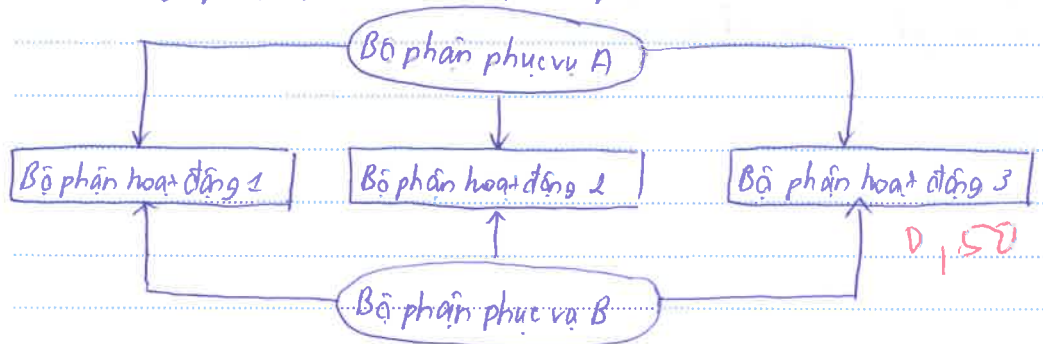 Bộ phận phục vụ A
Bộ phận hoạt động 1
Bộ phận hoạt động 2
Bộ phận hoạt động 3
0,50
Bộ phận phục vụ B